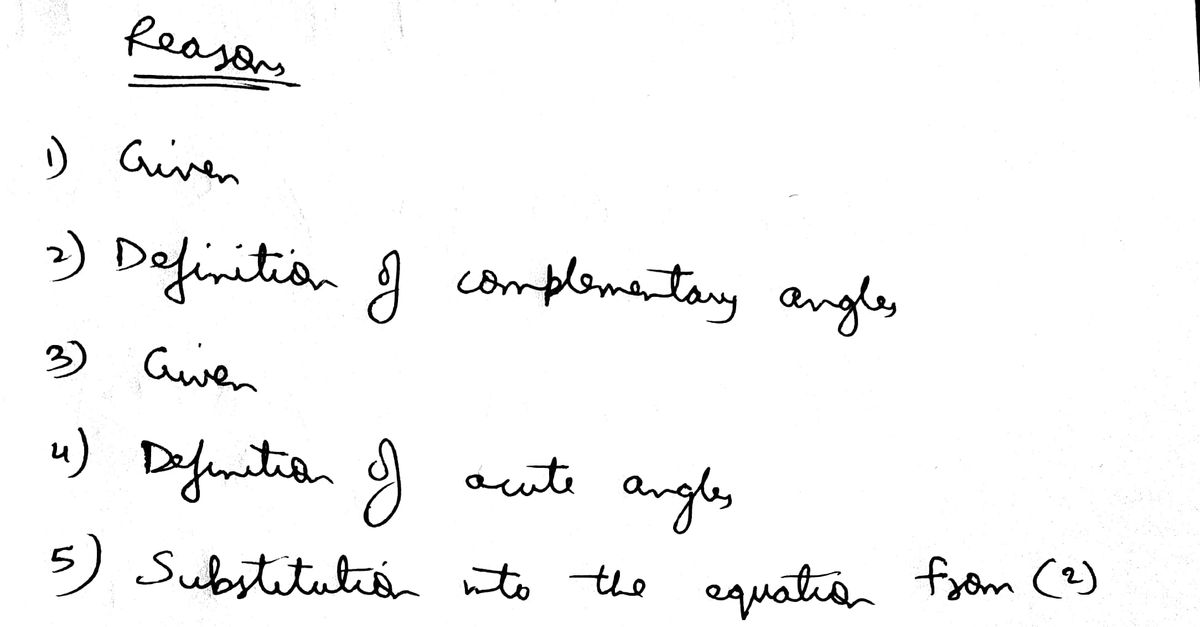 Reasons
1) Given
2) Definition of complementary angles
3) Given
4) Definition of acute angles
5) Substitution into the equation from (2)